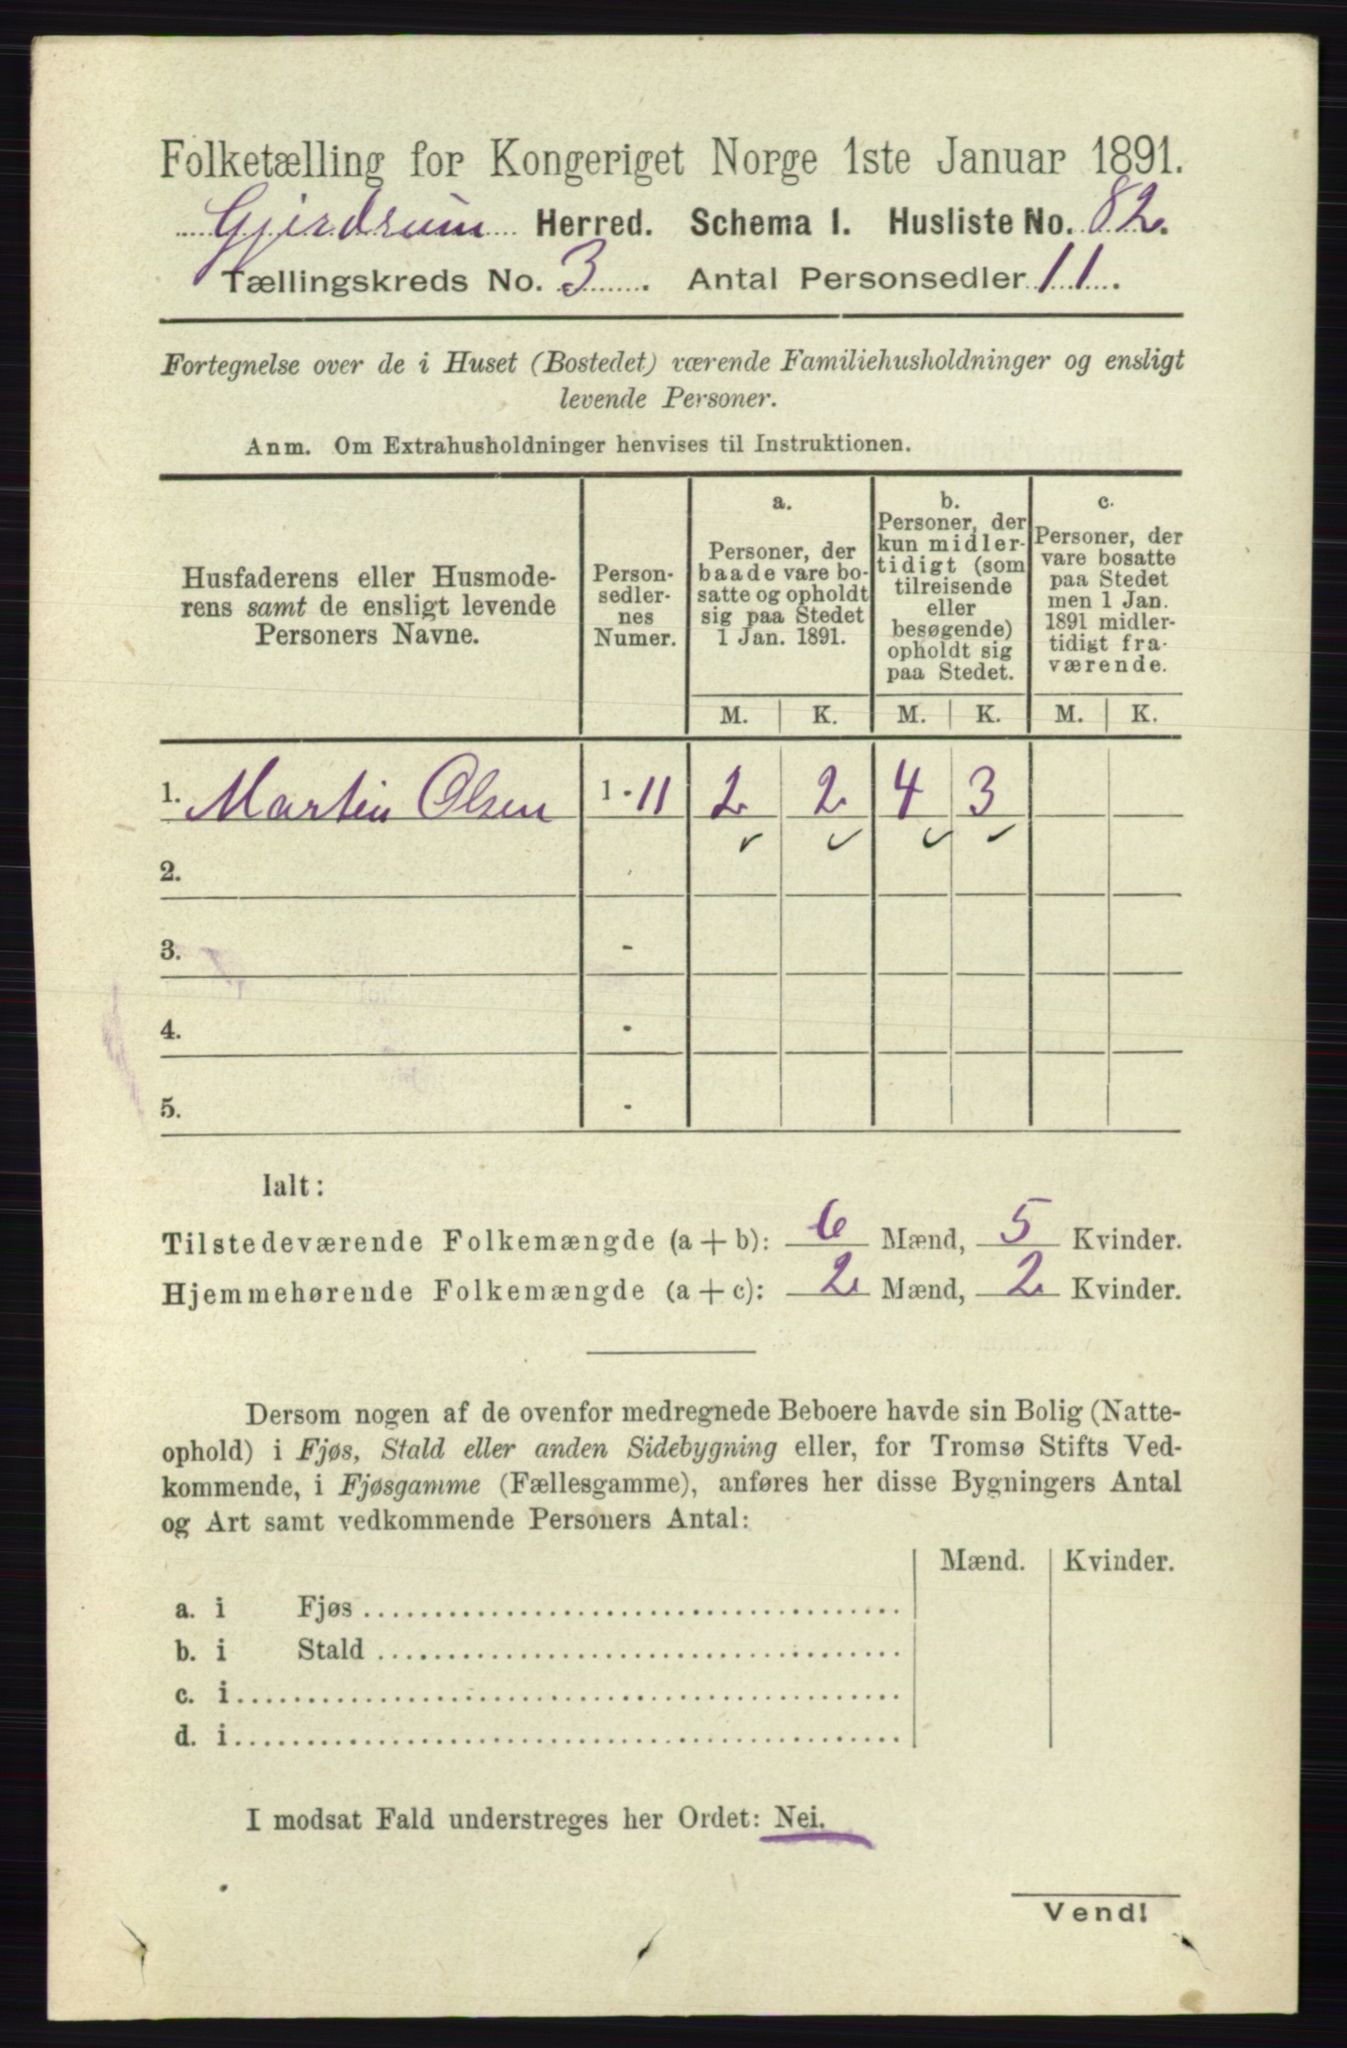 Folketælling for Kongeriget Norge 1ste Januar 1891.
Gjerdrum Herred. Schema I. Husliste No. 82.
Tællingskreds No. 3. Antal Personsedler 11.
Fortegnelse over de i Huset (Bostedet) værende Familiehusholdninger og ensligt
levende Personer.
Anm. Om Extrahusholdninger henvises til Instruktionen.
Husfaderens eller Husmode-
rens samt de ensligt levende
Personers Navne.
Person-
sedler-
nes
Numer.
a.
Personer, der
baade vare bo-
satte og opholdt
sig paa Stedet
1 Jan. 1891.
b.
Personer, der
kun midler-
tidigt (som
tilreisende
eller
besøgende)
opholdt sig
paa Stedet.
c.
Personer, der
vare bosatte
paa Stedet
men 1 Jan.
1891 midler-
tidigt fra-
værende.
M. K. M. K. M. K.
1. Martin Olsen 1 - 11 2 2 4 3
✓ ✓ ✓ ✓
2.
3. -
4. -
5. -
Ialt:
Tilstedeværende Folkemængde (a + b): 6 Mænd, 5 Kvinder.
Hjemmehørende Folkemængde (a + c): 2 Mænd, 2 Kvinder.
Dersom nogen af de ovenfor medregnede Beboere havde sin Bolig (Natte-
ophold) i Fjøs, Stald eller anden Sidebygning eller, for Tromsø Stifts Ved-
kommende, i Fjøsgamme (Fællesgamme), anføres her disse Bygningers Antal
og Art samt vedkommende Personers Antal:
Mænd. Kvinder.
a. i Fjøs
b. i Stald
c. i
d. i
I modsat Fald understreges her Ordet: Nei.
Vend!